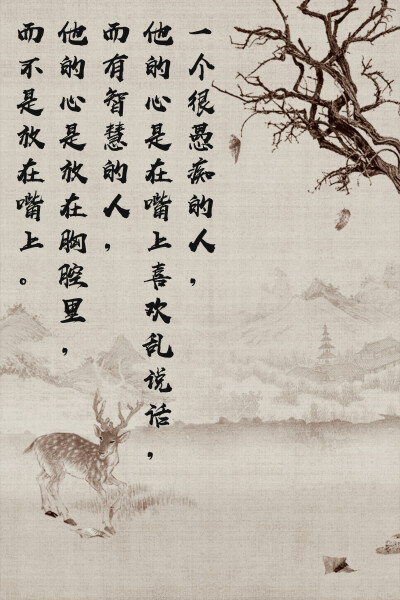 一个很愚痴的人，
他的心是在嘴上喜欢乱说话，
而有智慧的人，
他的心是放在胸腔里，
而不是放在嘴上。